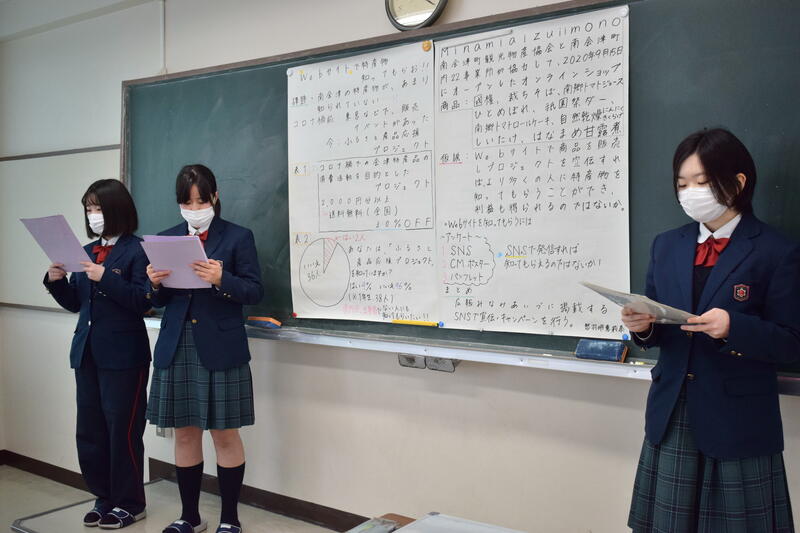 Webサイトで特産物
知ってもらお!!
課題:南会津の特産物が、あまり
知られていない
コロナ禍前 東京などで、販売
イベントがあった
今:ふるさと産品応援
プロジェクト
表1
コロナ禍での会津特産品の
消費活動を目的とした
プロジェクト
2,000円分以上
送料無料(全国)
10%OFF
表2
はい2人
いいえ
36人
あなたは「ふるさと
産品応援プロジェクト」
を知っていますか?
はい いいえ
(1年生 38人)
知ってもらいたい!!
Minamiaizuiimono
南会津町観光物産協会と南会津町
内22事業所が協力して、2020年9月5日
にオープンしたオンラインショップ
商品:国権、栽ちそば、南郷トマトジュース
ひとめぼれ、祇園祭ダー、
南郷トマトロールケーキ、自然乾燥にんにく
しいたけ、はなまめ甘露煮
仮説:Webサイトで商品を販売
しプロジェクトを宣伝すれ
ばより多くの人に特産物を
知ってもらうことができ、
利益も得られるのではないか。
Webサイトを知ってもらうには
アンケート
1 SNS
2 CM ポスター
3 パンフレット
SNSで発信すれば
知ってもらえるのではないか!
まとめ
広報みなみあいづに掲載する
SNSで宣伝・キャンペーンを行う。